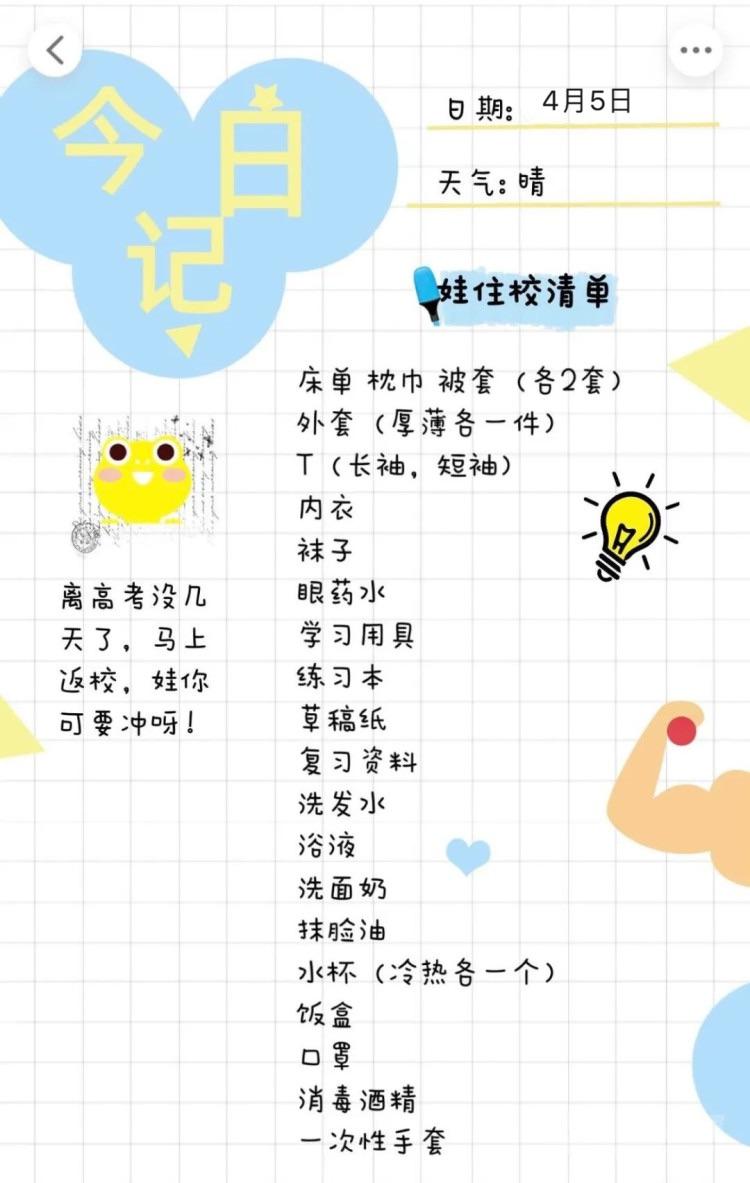 今日
记
日期: 4月5日
天气: 晴
娃住校清单
床单 枕巾 被套 (各2套)
外套 (厚薄各一件)
T (长袖, 短袖)
内衣
袜子
眼药水
学习用具
练习本
草稿纸
复习资料
洗发水
浴液
洗面奶
抹脸油
水杯 (冷热各一个)
饭盒
口罩
消毒酒精
一次性手套
离高考没几
天了, 马上
返校, 娃你
可要冲呀!